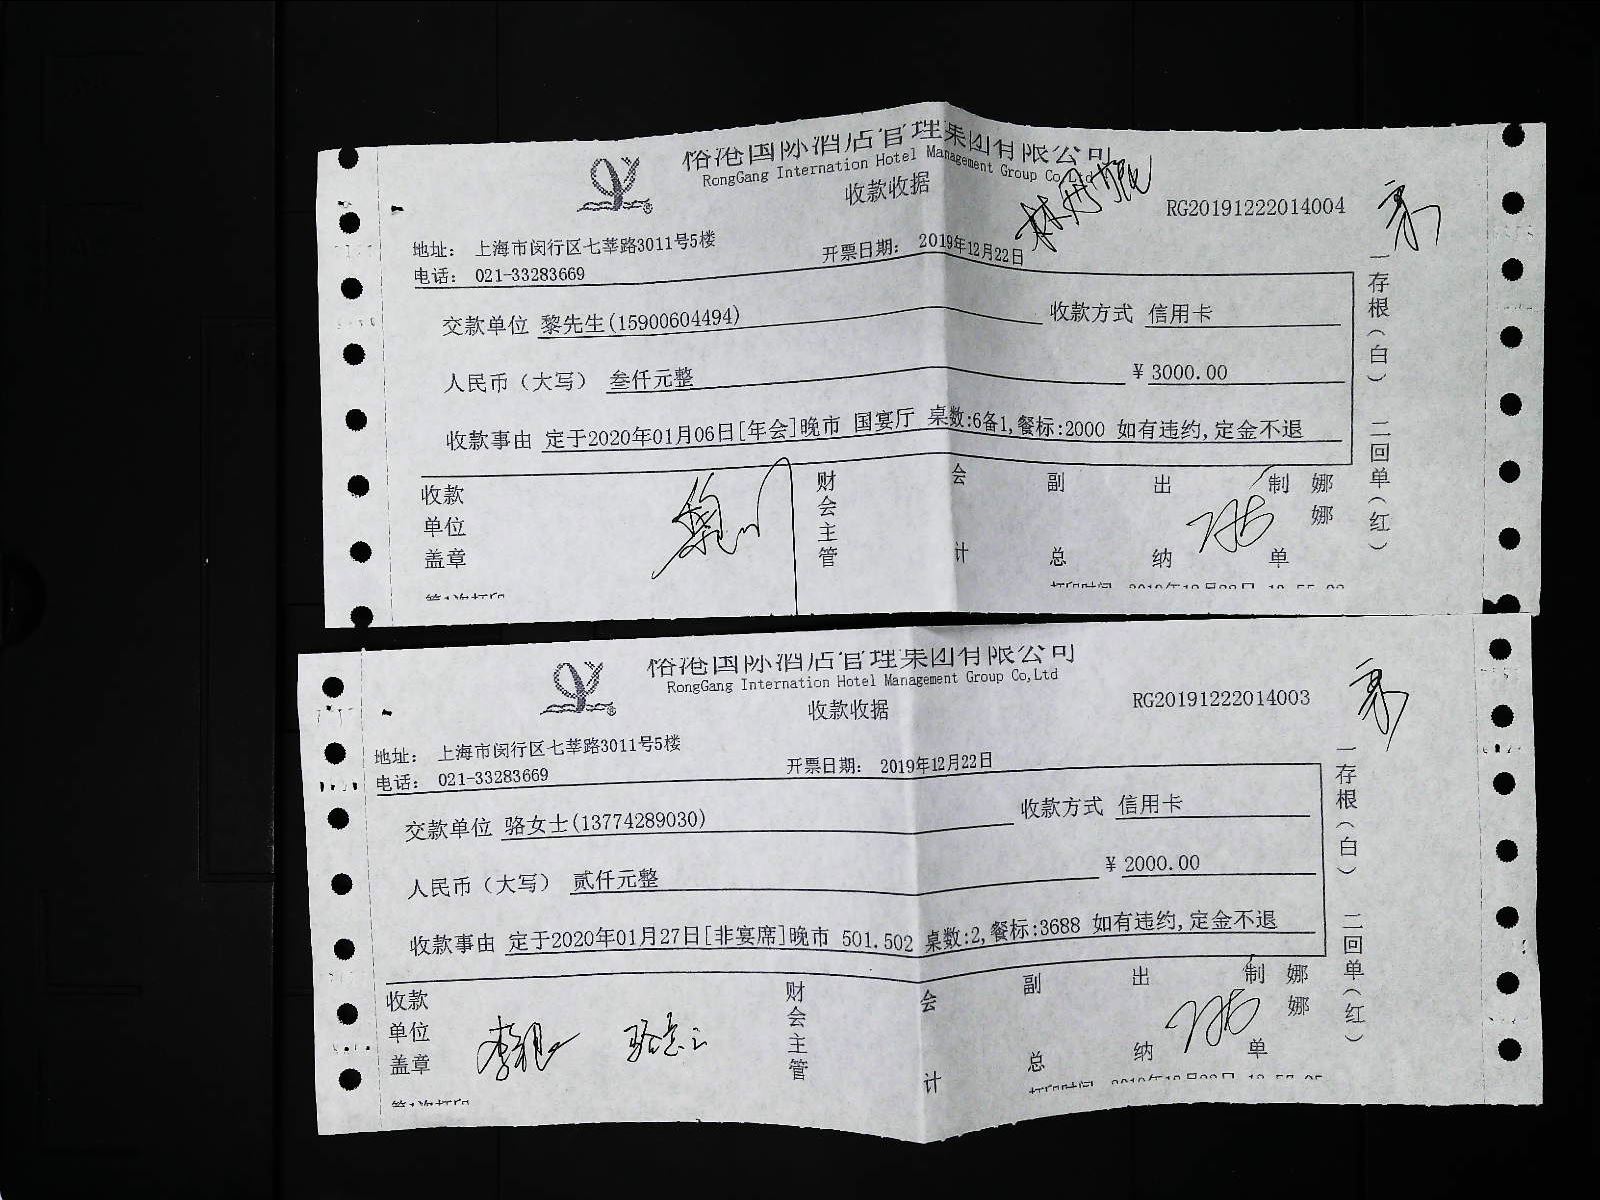 裕港国际酒店管理集团有限公司
RongGang Internation Hotel Management Group Co,Ltd
收款收据
RG20191222014004
地址： 上海市闵行区七莘路3011号5楼
开票日期： 2019年12月22日
电话： 021-33283669
交款单位 黎先生(15900604494) 收款方式 信用卡
人民币（大写） 叁仟元整 ¥ 3000.00
收款事由 定于2020年01月06日[年会]晚市 国宴厅 桌数:6备1,餐标:2000 如有违约,定金不退
收款单位盖章 财会主管 会计 副总 出纳 制单 娜娜
一存根（白） 二回单（红）
第1次打印
裕港国际酒店管理集团有限公司
RongGang Internation Hotel Management Group Co,Ltd
收款收据
RG20191222014003
地址： 上海市闵行区七莘路3011号5楼
开票日期： 2019年12月22日
电话： 021-33283669
交款单位 骆女士(13774289030) 收款方式 信用卡
人民币（大写） 贰仟元整 ¥ 2000.00
收款事由 定于2020年01月27日[非宴席]晚市 501.502 桌数:2,餐标:3688 如有违约,定金不退
收款单位盖章 财会主管 会计 副总 出纳 制单 娜娜
一存根（白） 二回单（红）
第1次打印